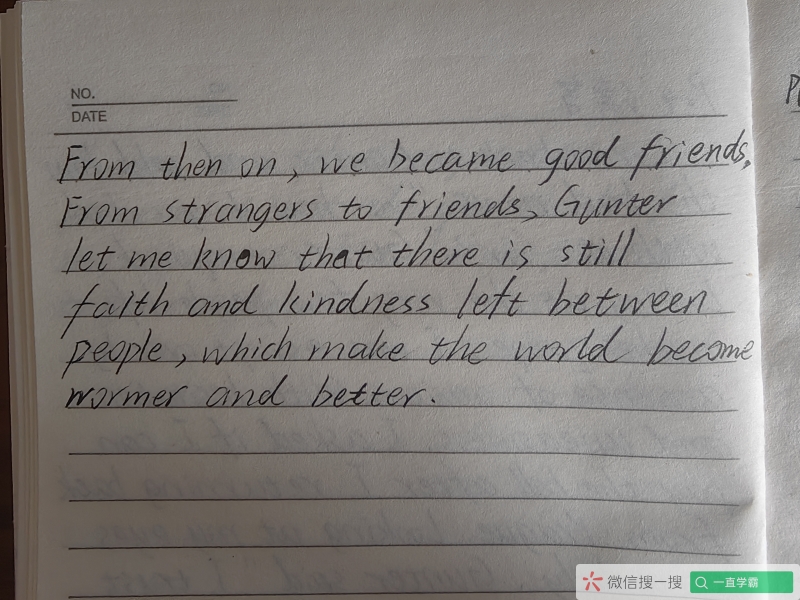 NO.
DATE
From then on, we became good friends.
From strangers to friends, Gunter
let me know that there is still
faith and kindness left between
people, which make the world become
wormer and better.
微信搜一搜
一直学霸